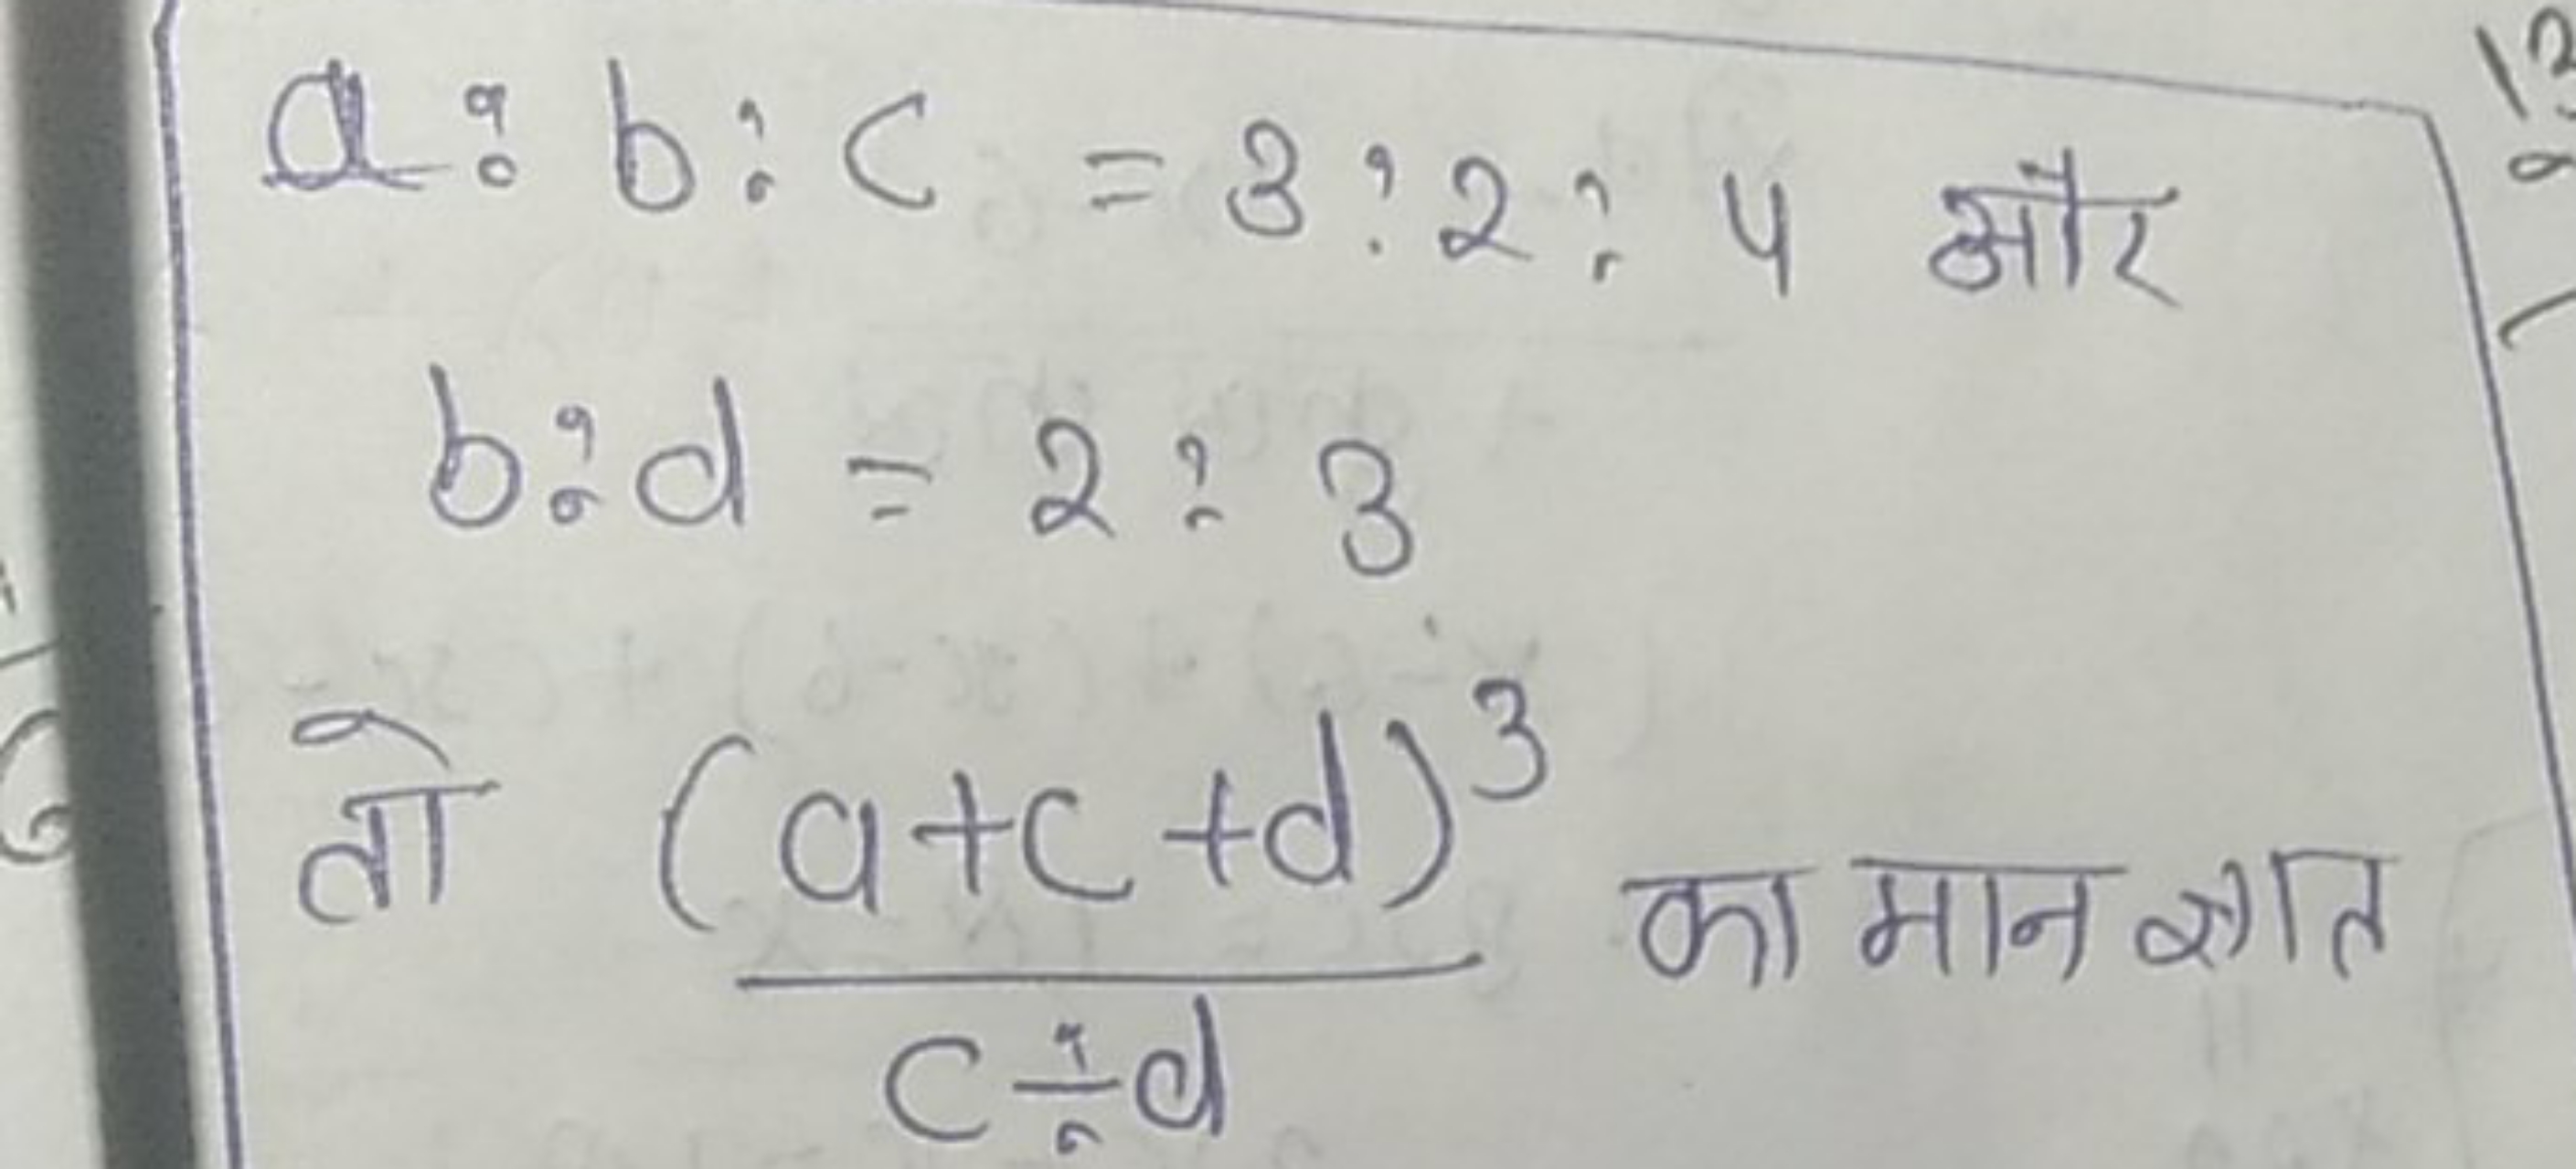 a : b : c = 3 : 2 : 4 और
b : d = 2 : 3
तो (a+c+d)³
c ÷ d का मान ज्ञात